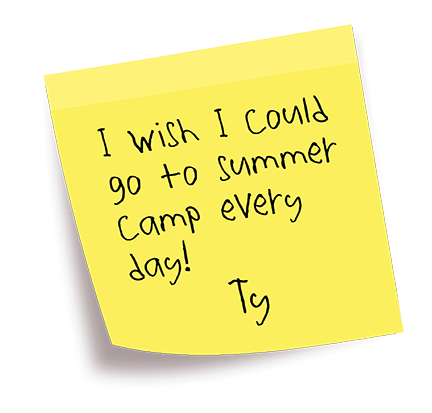 I wish I could
go to summer
camp every
day!
Ty